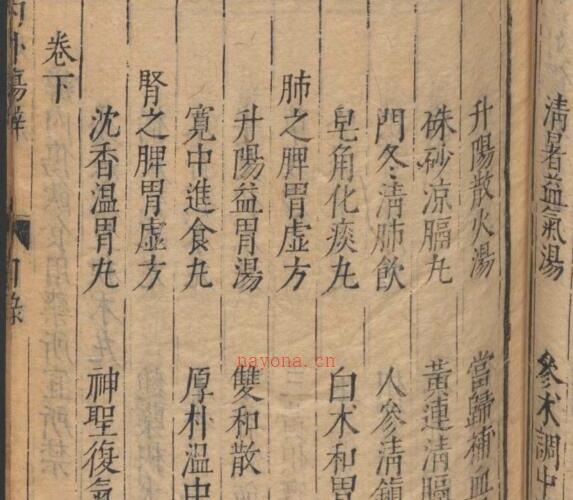 清暑益氣湯 參术調中
升陽散火湯 當歸補血
硃砂涼膈丸 黃連清膈
門冬清肺飲 人參清鎮
皂角化痰丸 白术和胃
肺之脾胃虛方
升陽益胃湯 雙和散
寬中進食丸 厚朴溫中
腎之脾胃虛方
沈香溫胃丸 神聖復氣
卷下
内外傷辨 目錄
nayona.cn